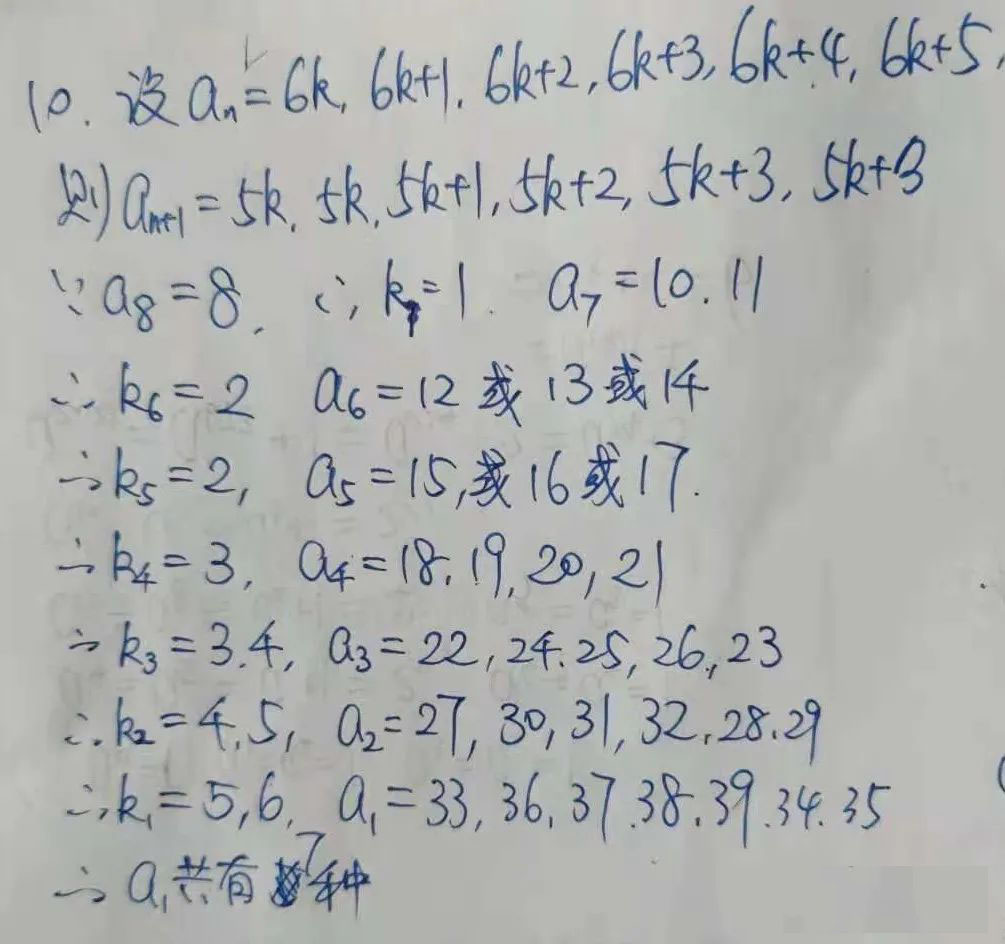 10. 设 aₙ = 6k, 6k+1, 6k+2, 6k+3, 6k+4, 6k+5,
则 aₙ₊₁ = 5k, 5k, 5k+1, 5k+2, 5k+3, 5k+3
∵ a₈ = 8, ∴ k₇ = 1. a₇ = 10. 11
∴ k₆ = 2 a₆ = 12 或 13 或 14
∴ k₅ = 2, a₅ = 15, 或 16 或 17.
∴ k₄ = 3, a₄ = 18. 19, 20, 21
∴ k₃ = 3.4, a₃ = 22, 24. 25, 26, 23
∴ k₂ = 4.5, a₂ = 27, 30, 31, 32, 28. 29
∴ k₁ = 5, 6, a₁ = 33, 36, 37. 38. 39. 34. 35
∴ a₁ 共有 7 种